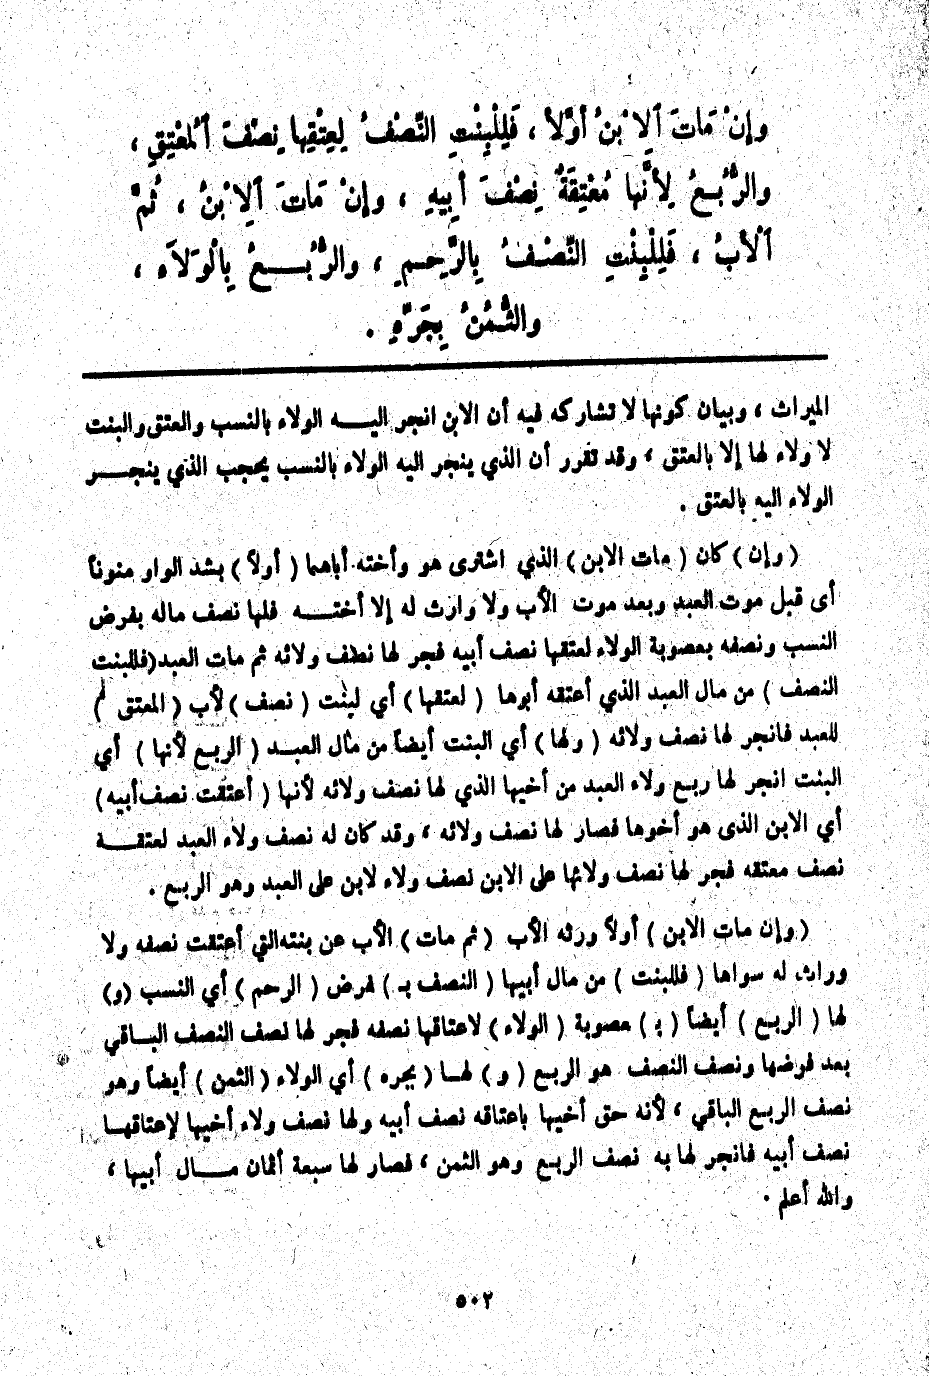 وإنْ مَاتَ اَلِابْنُ أَوَّلاً ، فَلِلْبِنْتِ النِّصْفُ لِعِتْقِها نِصْفَ اَلْمعْتِقِ ،
والرُّبُـعُ لِأنَّها مُعْتِقَةٌ نِصْفَ أبِيهِ ، وإنْ مَاتَ اَلِابْنُ ، ثُمَّ
اَلْأبُ ، فَلِلْبِنْتِ النِّصْفُ بِالرَّحِمِ ، والرُّبُــعُ بِالْوَلاَءِ ،
والثُّمُنُ بِجَرِّهِ .
الميراث ، وبيان كونها لا تشاركه فيه أن الابن انجر اليــه الولاء بالنسب والعتق والبنت
لا ولاء لها إلا بالعتق ، وقد تقرر أن الذي ينجر اليه الولاء بالنسب يحجب الذي ينجــر
الولاء اليه بالعتق .
( وإن ) كان ( مات الابن ) الذي اشترى هو وأخته أباهما ( أولاً ) بشد الواو منوناً
أى قبل موت العبد وبعد موت الأب ولا وارث له إلا أختــه فلها نصف ماله بفرض
النسب ونصفه بعصوبة الولاء لعتقها نصف أبيه فجر لها نصف ولائه ثم مات العبد (فللبنت
النصف ) من مال العبد الذي أعتقه أبوها ( لعتقها ) أي لبنت ( نصف ) لأب ( المعتق )
للعبد فانجر لها نصف ولائه ( ولها ) أي البنت أيضاً من مال العبــد ( الربـع لأنها ) أي
البنت انجر لها ربـع ولاء العبد من أخيها الذي لها نصف ولائه لأنها ( أعتقت نصف أبيه )
أي الابن الذى هو أخوها فصار لها نصف ولائه ، وقد كان له نصف ولاء العبد لعتقــه
نصف معتقه فجر لها نصف ولائها على الابن نصف ولاء لابن على العبد وهو الربـع .
( وإن مات الابن ) أولاً ورثه الأب ( ثم مات ) الأب عن بنته التي أعتقت نصفه ولا
وراث له سواها ( فللبنت ) من مال أبيها ( النصف بـ ) فرض ( الرحم ) أي النسب (و)
لها ( الربـع ) أيضاً ( بـ ) عصوبة ( الولاء ) لاعتاقها نصفه فجر لها نصف النصف البـاقي
بعد فرضها ونصف النصف هو الربـع ( و ) لهـا ( بجره ) أي الولاء ( الثمن ) أيضاً وهو
نصف الربـع الباقي ، لأنه حق أخيها باعتاقه نصف أبيه ولها نصف ولاء أخيها لإعتاقهـا
نصف أبيه فانجر لها به نصف الربـع وهو الثمن ، فصار لها سبعة أثمان مــال أبيها ،
والله أعلم .
٥٠٢